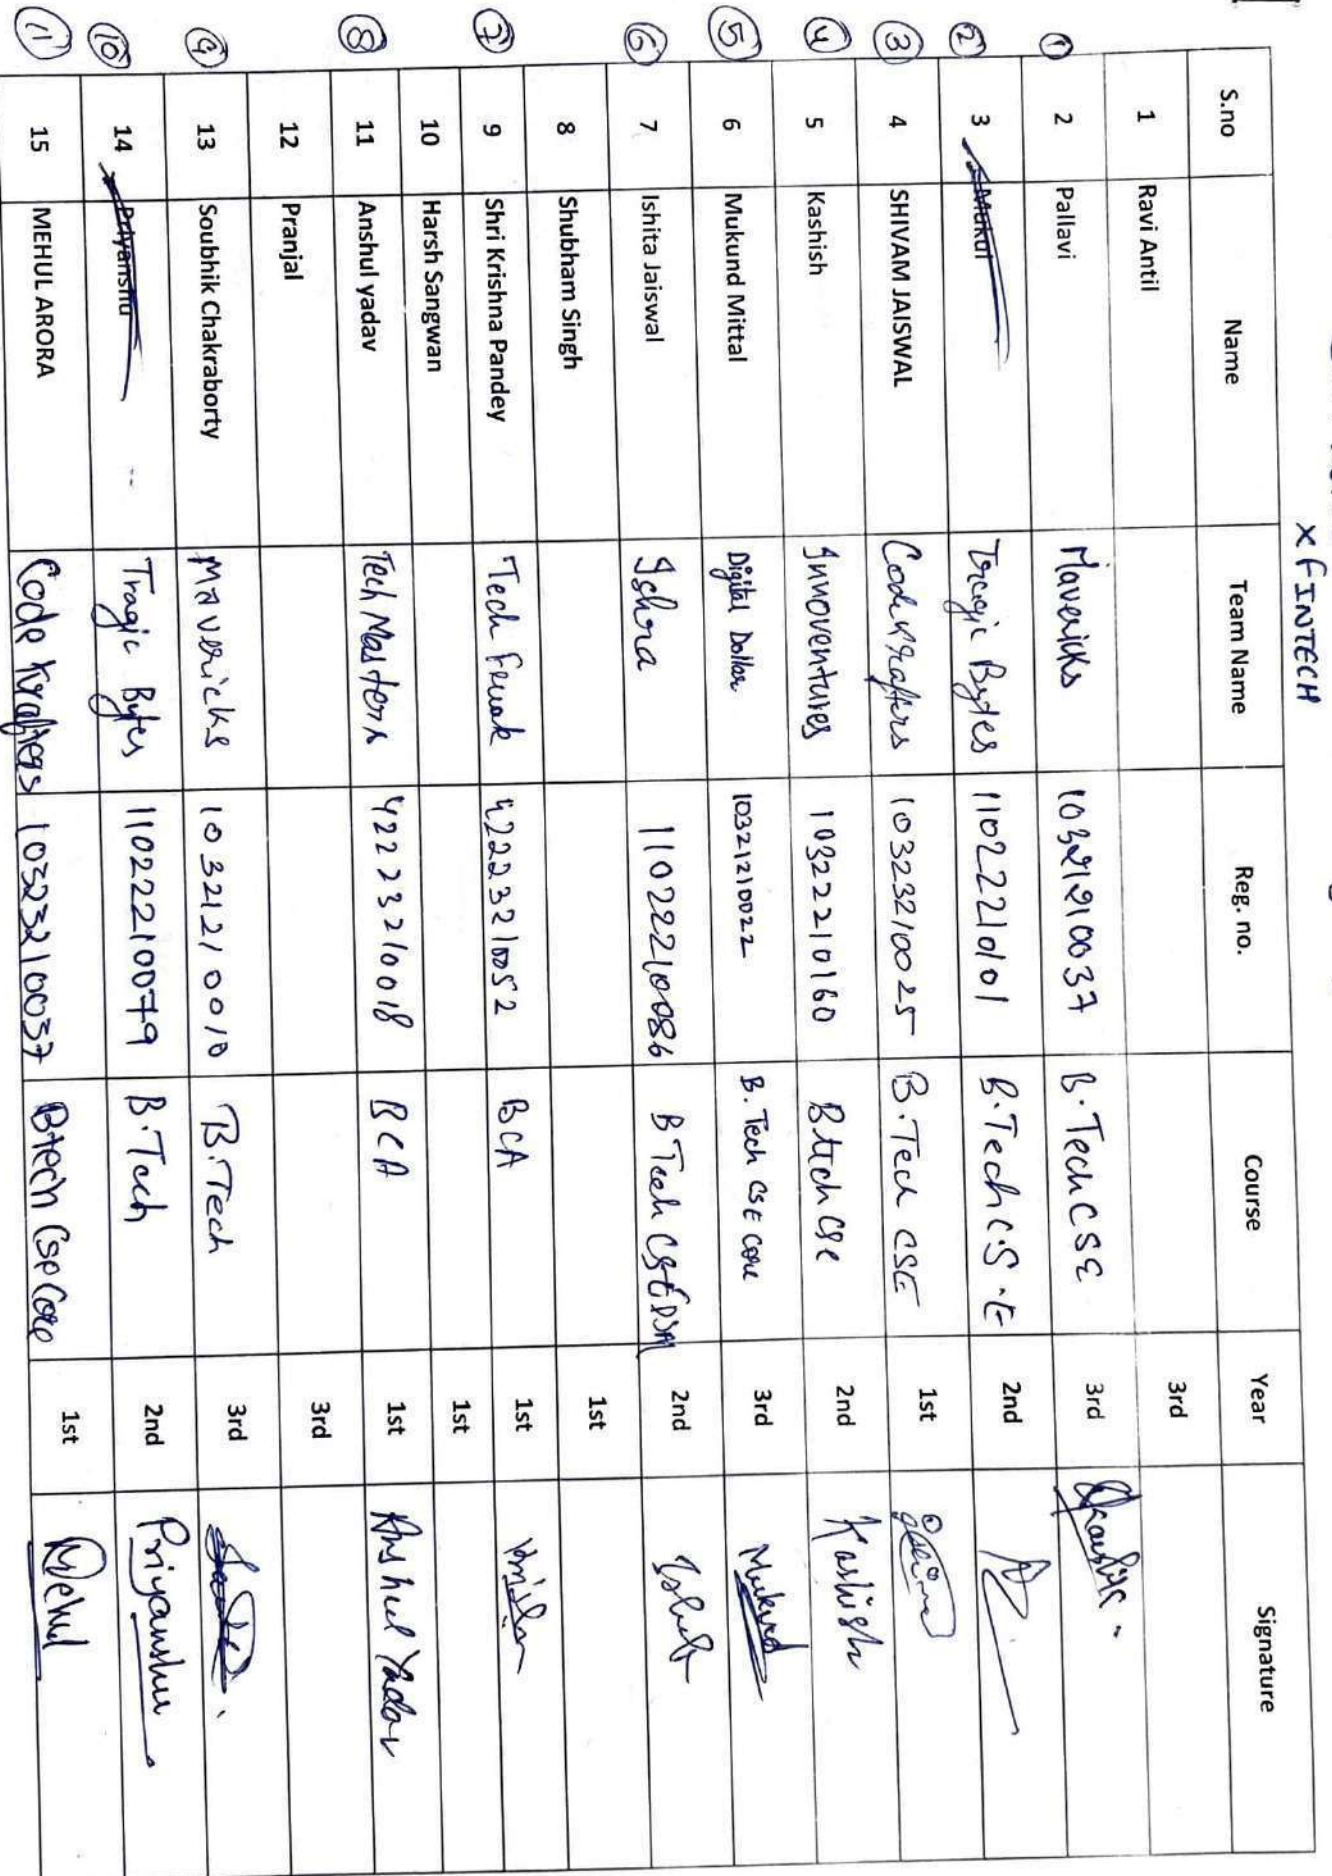 x FINTECH
S.no Name Team Name Reg. no. Course Year Signature
1 Ravi Antil 3rd
① 2 Pallavi Mavericks 10321210037 B.Tech CSE 3rd
② 3 Mukul Tragic Bytes 11022210101 B.Tech C.S.E 2nd
③ 4 SHIVAM JAISWAL Code Krafters 10323210025 B.Tech CSE 1st
④ 5 Kashish Innoventures 10322210160 Btech CSE 2nd Kashish
⑤ 6 Mukund Mittal Digital Dollar 10321210022 B. Tech CSE core 3rd Mukund
⑥ 7 Ishita Jaiswal Ishra 11022210086 B Tech CSE DSAI 2nd
8 Shubham Singh 1st
⑦ 9 Shri Krishna Pandey Tech Freak 422223210052 BCA 1st
10 Harsh Sangwan 1st
⑧ 11 Anshul yadav Tech Masters 42223210018 BCA 1st Anshul Yadav
12 Pranjal 3rd
⑨ 13 Soubhik Chakraborty Mavericks 10321210010 B.Tech 3rd
⑩ 14 Priyanshu Tragic Bytes 11022210079 B.Tech 2nd Priyanshu
⑪ 15 MEHUL ARORA Code Krafters 10323210037 Btech Cse Core 1st Mehul